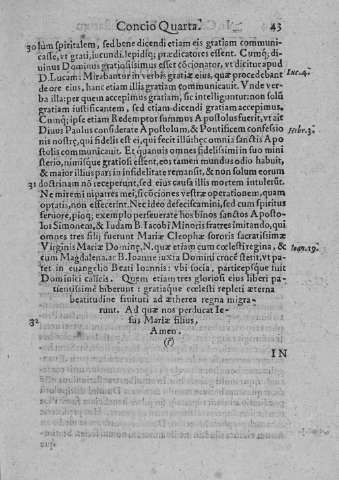 Concio Quarta. 43
30 lùm spiritalem, sed bene dicendi etiam eis gratiam communi-
casse, vt grati, iucundi, lepidiq; prædicatores essent. Cumq; di-
uinus Dominus gratiosissimus esset cōcionator, vt dicitur apud
D. Lucam: Mirabantur in verbis gratiæ eius, quæ procedebant Luc. 4.
de ore eius, hanc etiam illis gratiam communicauit. Vnde ver-
ba illa: per quem accepimus gratiam, sic intelliguntur: non solū
gratiam iustificantem, sed etiam dicendi gratiam accepimus.
Cumq; ipse etiam Redemptor summus Apostolus fuerit, vt ait
Diuus Paulus considerate Apostolum, & Pontificem confessio Hebr. 3.
nis nostre, qui fidelis est ei, qui fecit illum
stolis communicauit. Et quanuis omnes fidelissimi in suo mini
sterio, nimisque gratiosi essent, eos tamen mundus odio habuit,
& maior illius pars in infidelitate remansit, & non solum eorum
31 doctrinam nō recepeτunt, sed eius causa illis mortem intulerūt.
Ne miremini patres mei, si cōciones vestræ operationem, quam
optatis, non effecerint. Nec ideo defeciscamini, sed cum spiritus
feruore, pioq; exemplo perseuerate hos binos sanctos Aposto-
los Simonem, & Iudam B. Iacobi Minoris fratres imitando, qui
omnes tres filij fuerunt Mariæ Cleophæ sororis sacratissimæ
Virginis Mariæ Dominę. N. quæ etiam cum cœlesti regina, & Ioan. 19.
cum Magdalena, ac B. Ioanne iuxta Domini crucē stetit, vt pa-
tet in euangelio Beati Ioannis: vbi socia, particepsque fuit
Dominici calicis. Quem etiam tres gloriosi eius liberi pa-
tientissimè biberunt: gratiaque cœlesti repleti æterna
beatitudine fruituri ad ætherea regna migra-
runt. Ad quæ nos perducat Ie-
32 sus Mariæ filius,
Amen.
IN